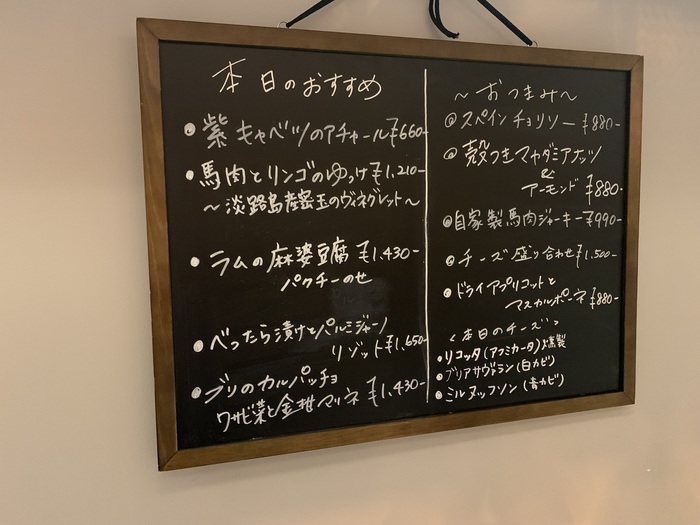 本日のおすすめ
紫キャベツのアチャール ¥660-
馬肉とリンゴのゆっけ ¥1,210-
～淡路島産玉のヴィネグレット～
ラムの麻婆豆腐 ¥1,430-
パクチーのせ
べったら漬けとパルミジャーノ
リゾット ¥1,650-
ブリのカルパッチョ
ワサビ菜と金柑マリネ ¥1,430-
～おつまみ～
スペインチョリソー ¥880-
殻つきマカダミアナッツ
&
アーモンド ¥880-
自家製馬肉ジャーキー ¥990-
チーズ盛り合わせ ¥1,500-
ドライアプリコットと
マスカルポーネ ¥880-
＜本日のチーズ＞
リコッタ(アフミカータ)燻製
ブリアサヴァラン(白カビ)
ミルヌッフソン(青カビ)